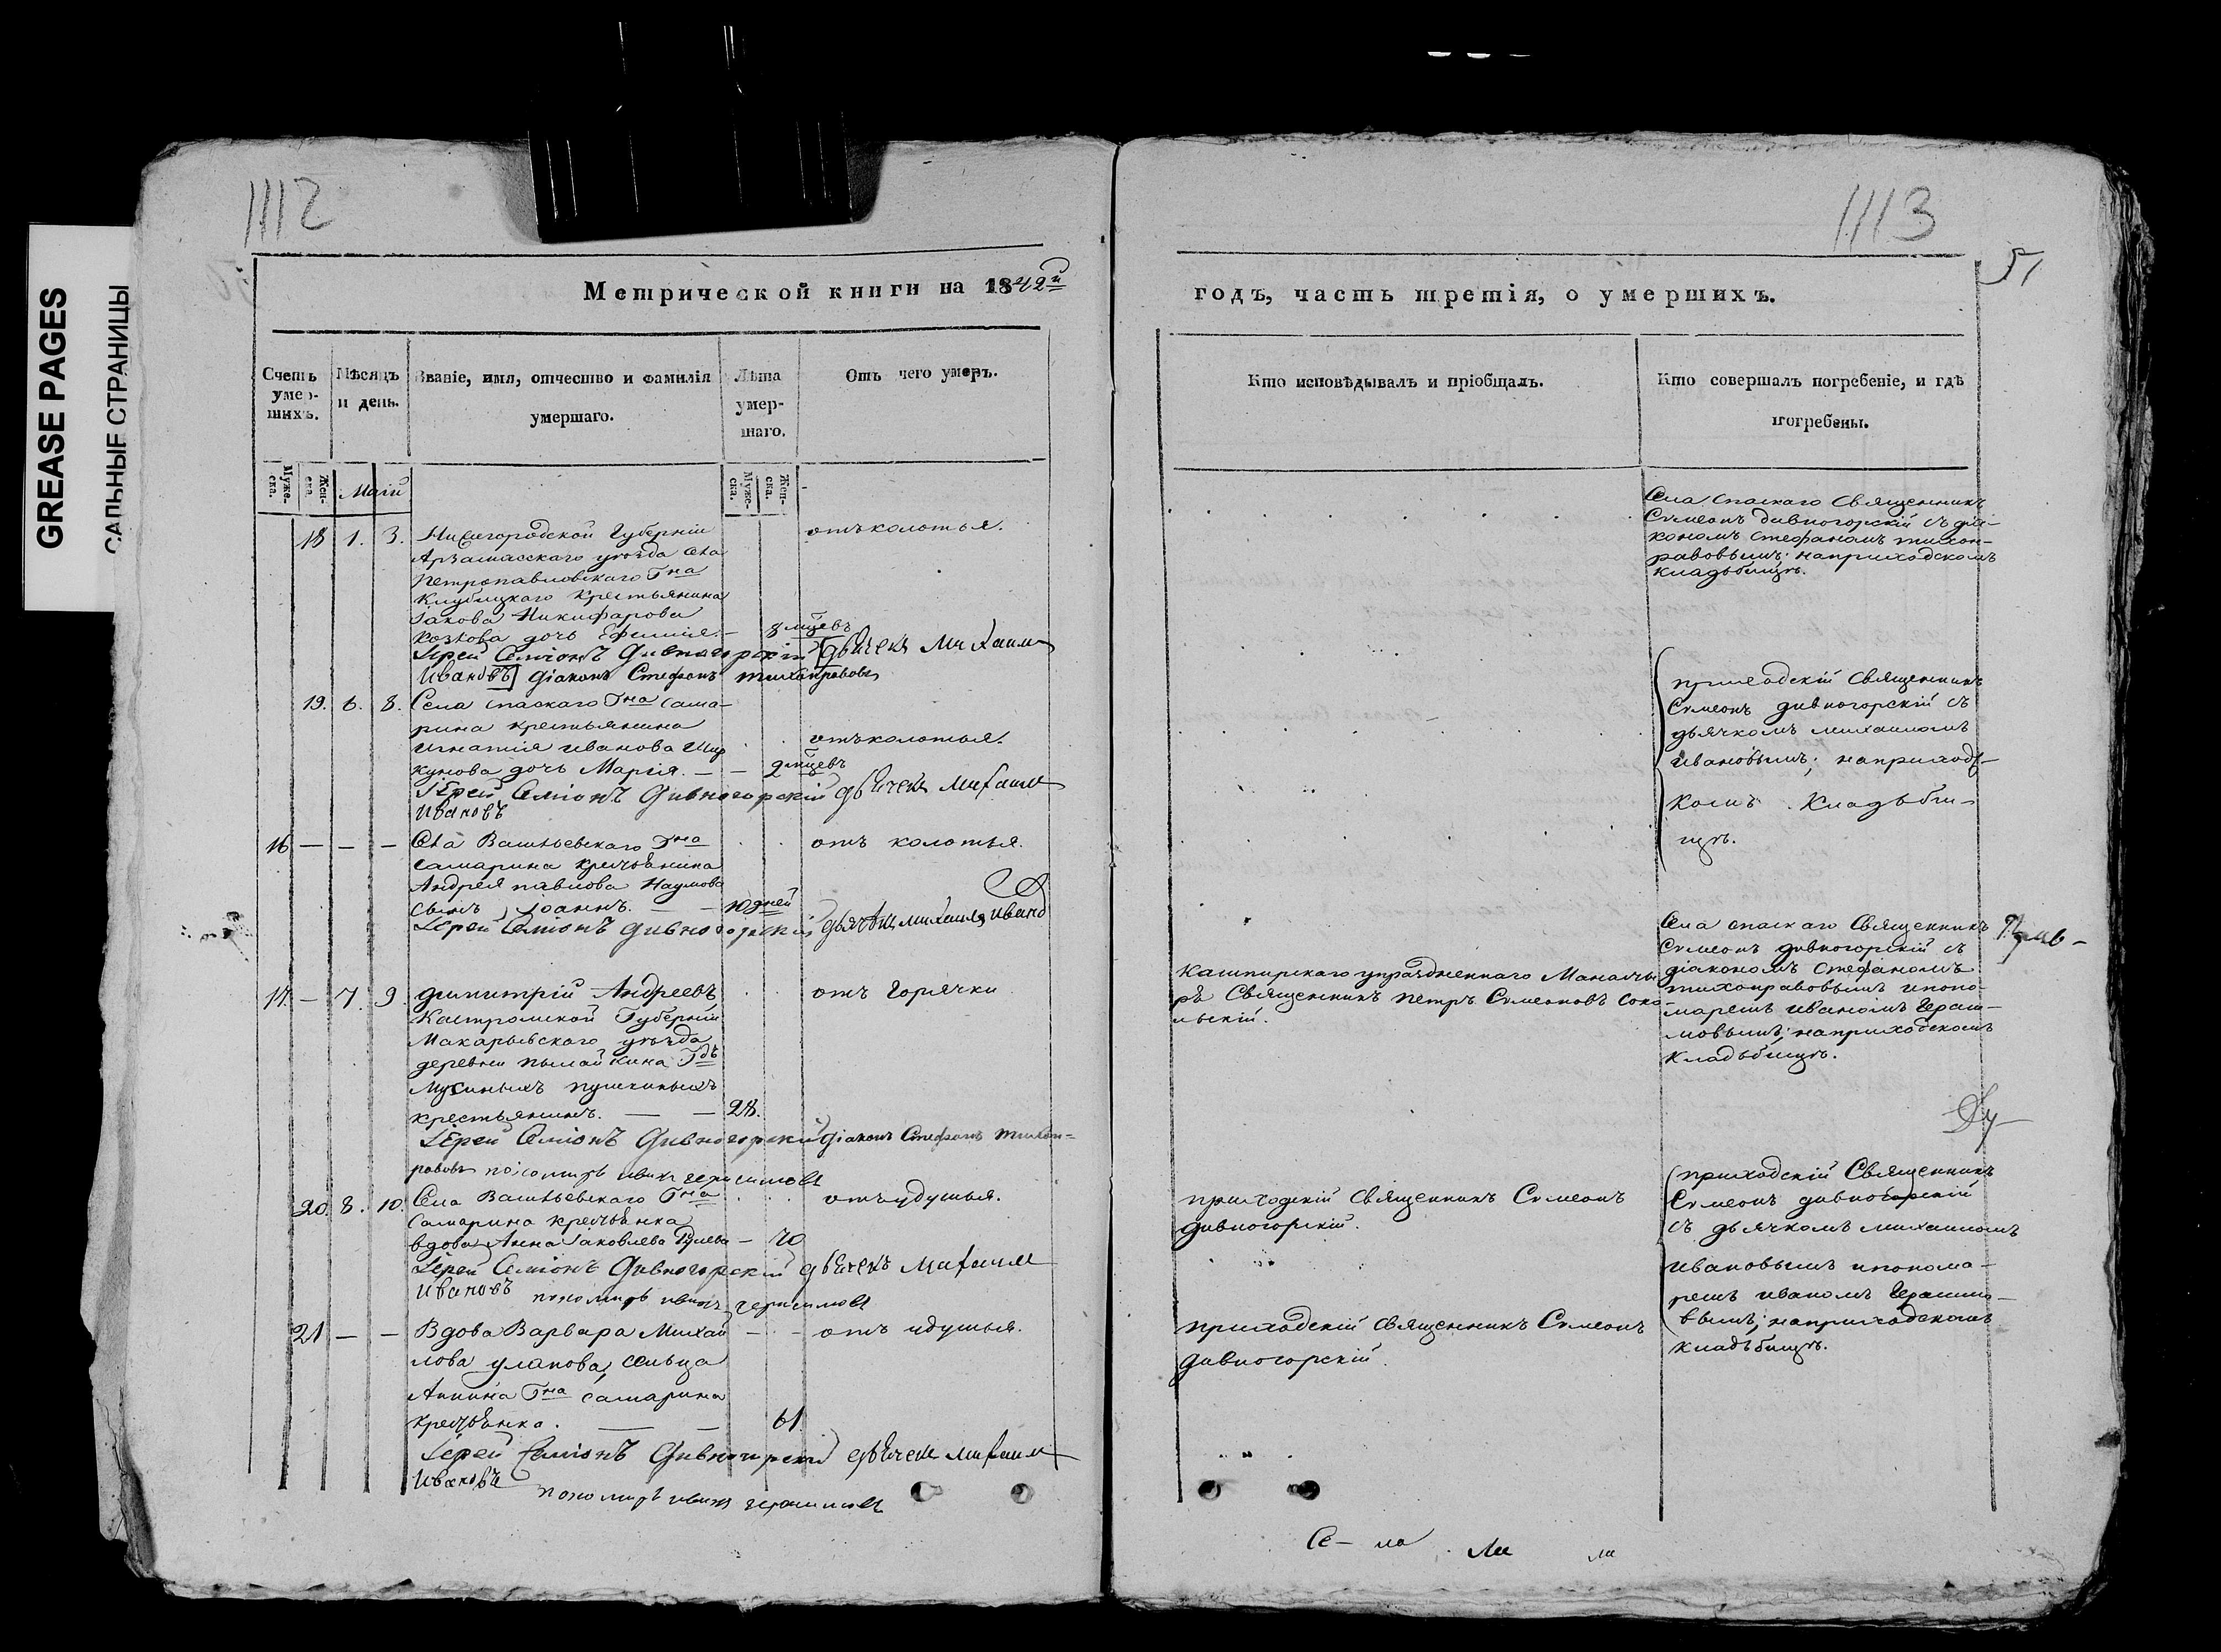 GREASE PAGES
САЛЬНЫЕ СТРАНИЦЫ
1112
Метрической книги на 1842й
Счетъ умершихъ.
Мѣсяцъ и день.
Званіе, имя, отчество и фамилія умершаго.
Лѣта умершаго.
Отъ чего умеръ.
Мужеска.
Женска.
Маій
Мужеска.
Женска.
18 1. 3. Нижегородской Губерніи отъ колотья.
Арзамаскаго уѣзда села
Петропавловскаго Гна
крестьянина
Іакова Никифарова
Козлова дочь Ефимія. — 8 мцевъ
Іерей Симіонъ Дивногорскій дьячекъ Михаилъ
Ивановъ діаконъ Стефанъ тихонравовъ
19. 6. 8. Села спаскаго Гна сама-
рина крестьянина
игнатія иванова отъ колотья.
дочь Марія. — — 2 мцевъ
Іерей Симіонъ Дивногорскій дьячекъ Михаилъ
Ивановъ
16 — — — Села Васильевскаго Гна отъ колотья.
самарина крестьянина
Андрея павлова Наумова
сынъ Іоаннъ. — — 10 дней
Іерей Симіонъ Дивногорскій дьячекъ михаилъ иванов
17. — 7. 9. димитрій Андреевъ отъ горячки
Костромской Губерніи
Макарьевскаго уѣзда
деревни Гдъ
Мусиныхъ пушкиныхъ
крестьянинъ. — — 28.
Іерей Симіонъ Дивногорскій діаконъ Стефанъ тихон-
равовъ пономарь иванъ герасимовъ
20. 8. 10. Села Васильевскаго Гна отъ удушья.
Самарина крестьянка
вдова Анна Іаковлева — 70
Іерей Симіонъ Дивногорскій дьячекъ Михаилъ
Ивановъ пономарь иванъ герасимовъ
21 — — Вдова Варвара Михай — - отъ удушья.
лова уланова, сельца
Аннина Гна самарина
крестьянка. — — 61.
Іерей Симіонъ Дивногорскій дьячекъ михаилъ
Ивановъ пономарь иванъ герасимовъ
1113
51
годъ, часть третія, о умершихъ.
Кто исповѣдывалъ и пріобщалъ.
Кто совершалъ погребеніе, и гдѣ
погребены.
Села спаскаго Священникъ
Сѵмеонъ дивногорскій съ діа-
кономъ стефаномъ тихон-
равовымъ; на приходскомъ
кладьбищѣ.
приходскій Священникъ
Сѵмеонъ дивногорскій съ
дьячкомъ михаиломъ
ивановымъ; на приходс-
комъ кладьби-
щѣ.
Кашпирскаго упраздненнаго Манасты
рѣ Священникъ петръ Сѵмеоновъ соко-
льскій.
Села спаскаго Священникъ
Сѵмеонъ дивногорскій съ
діакономъ стефаномъ
тихонравовымъ и поно-
маремъ иваномъ Гераси-
мовымъ; на приходскомъ
кладьбищѣ.
приходскій Священникъ Сѵмеонъ
дивногорскій.
приходскій Священникъ
Сѵмеонъ дивногорскій
съ дьячкомъ михаиломъ
ивановымъ и понома-
ремъ иваномъ Герасимо-
вымъ; на приходскомъ
кладьбищѣ.
приходскій священникъ Сѵмеонъ
дивногорскій.